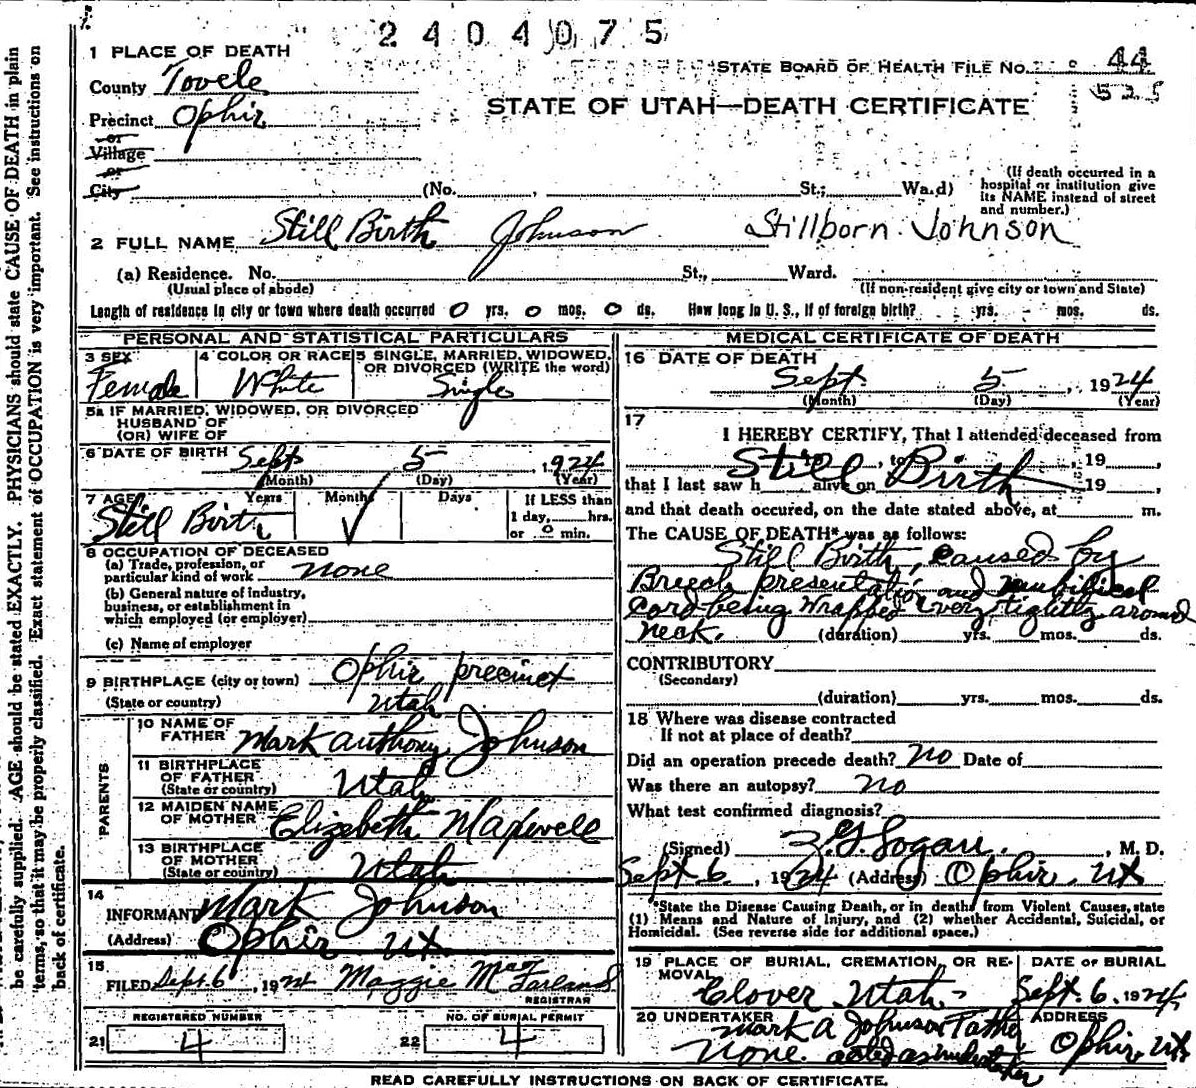 2404075
1 PLACE OF DEATH
STATE BOARD OF HEALTH FILE No. 44
525
County Tooele
STATE OF UTAH—DEATH CERTIFICATE
Precinct Ophir
or
Village
or
City (No. , St.; Ward)
(If death occurred in a hospital or institution give its NAME instead of street and number.)
2 FULL NAME Still Birth Johnson Stillborn Johnson
(a) Residence. No. St., Ward.
(Usual place of abode) (If non-resident give city or town and State)
Length of residence in city or town where death occurred 0 yrs. 0 mos. 0 ds. How long in U. S., if of foreign birth? yrs. mos. ds.
PERSONAL AND STATISTICAL PARTICULARS
3 SEX Female
4 COLOR OR RACE White
5 SINGLE, MARRIED, WIDOWED, OR DIVORCED (WRITE the word) Single
5a IF MARRIED, WIDOWED, OR DIVORCED
HUSBAND OF
(OR) WIFE OF
6 DATE OF BIRTH Sept 5, 1924
(Month) (Day) (Year)
7 AGE Years Months Days If LESS than
Still Birth 1 day, hrs.
or 0 min.
8 OCCUPATION OF DECEASED
(a) Trade, profession, or
particular kind of work none
(b) General nature of industry,
business, or establishment in
which employed (or employer)
(c) Name of employer
9 BIRTHPLACE (city or town) Ophir precinct
(State or country) Utah
PARENTS
10 NAME OF
FATHER Mark Anthony Johnson
11 BIRTHPLACE
OF FATHER
(State or country) Utah
12 MAIDEN NAME
OF MOTHER Elizabeth Maxwell
13 BIRTHPLACE
OF MOTHER
(State or country) Utah
14
INFORMANT Mark Johnson
(Address) Ophir Ut
15
FILED Sept. 6, 1924 Maggie McFarland
REGISTRAR
REGISTERED NUMBER
21 4
NO. OF BURIAL PERMIT
22 4
MEDICAL CERTIFICATE OF DEATH
16 DATE OF DEATH
Sept. 5, 1924
(Month) (Day) (Year)
17
I HEREBY CERTIFY, That I attended deceased from
Still Birth , to , 19 ,
that I last saw h alive on 19 ,
and that death occured, on the date stated above, at m.
The CAUSE OF DEATH* was as follows:
Still Birth, caused by
Breech presentation and umbilical
cord being wrapped very tightly around
neck. (duration) yrs. mos. ds.
CONTRIBUTORY
(Secondary)
(duration) yrs. mos. ds.
18 Where was disease contracted
If not at place of death?
Did an operation precede death? No Date of
Was there an autopsy? no
What test confirmed diagnosis?
(Signed) Logan, M. D.
Sept. 6, 1924 (Address) Ophir, Ut
*State the Disease Causing Death, or in deaths from Violent Causes, state
(1) Means and Nature of Injury, and (2) whether Accidental, Suicidal, or
Homicidal. (See reverse side for additional space.)
19 PLACE OF BURIAL, CREMATION, OR RE-
MOVAL Clover Utah
DATE OF BURIAL
Sept. 6, 1924
20 UNDERTAKER Mark A Johnson Father
None. acted as undertaker
ADDRESS
Ophir, Ut
READ CAREFULLY INSTRUCTIONS ON BACK OF CERTIFICATE.
be carefully supplied. AGE should be stated EXACTLY. PHYSICIANS should state CAUSE OF DEATH in plain
terms, so that it may be properly classified. Exact statement of OCCUPATION is very important. See instructions on
back of certificate.